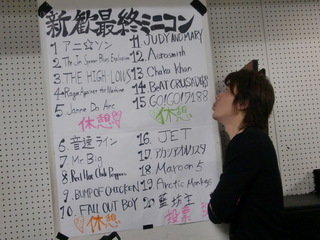 新歓最終ミニコン
1 アニ☆ソン
2 The Jon Spencer Blues Explosion
3 THE HIGH-LOWS
4 Rage Against the Machine
5 Janne Da Arc
休憩
6 音速ライン
7 Mr. Big
8 Red Hot Chili Peppers
9 BUMP OF CHICKEN
10. FALL OUT BOY
休憩
11. JUDY AND MARY
12. Aerosmith
13. Chaka Khan
14. BEAT CRUSADERS
15. GO!GO!7188
休憩
16. JET
17.
18. Maroon 5
19. Arctic Monkeys
20 藍坊主
投票